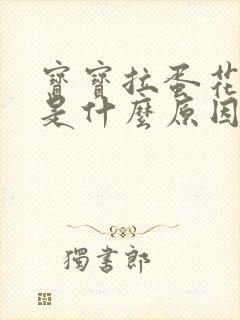 寶寶拉蛋花
是什麼原因
獨書郎